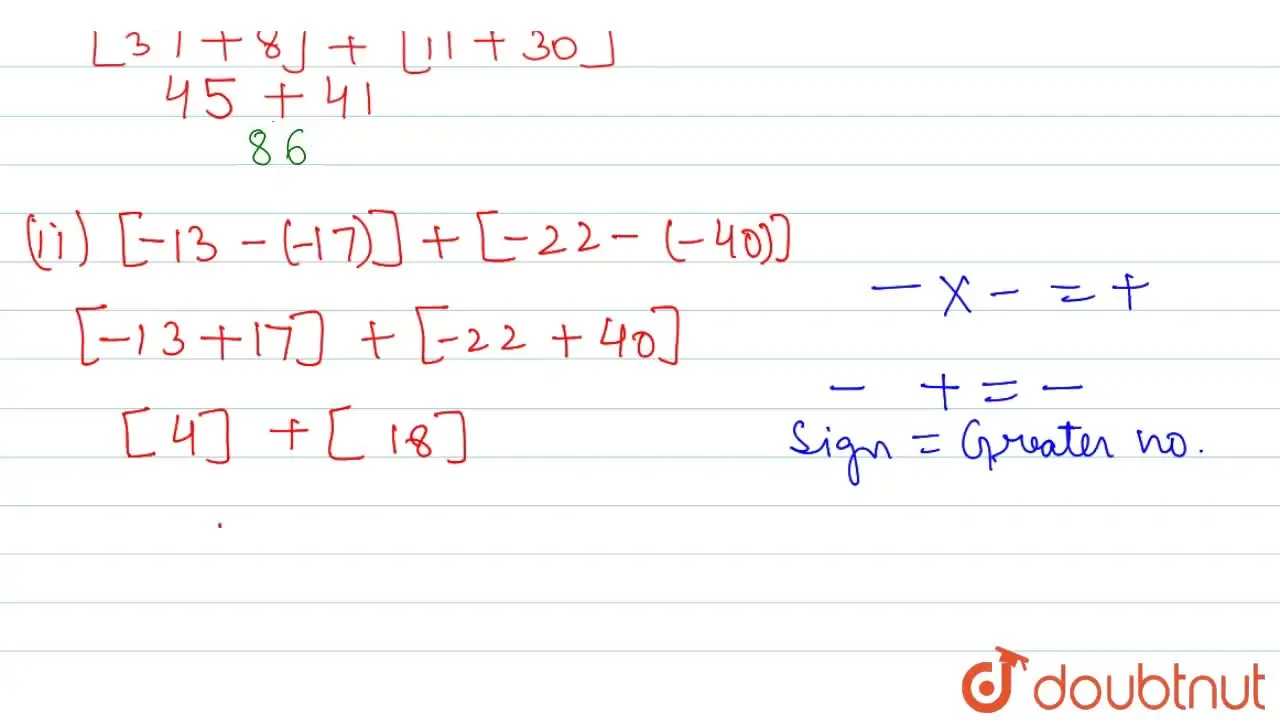 [37 + 8] + [11 + 30]
45 + 41
86
(ii) [-13 - (-17)] + [-22 - (-40)]
- X - = +
[-13 + 17] + [-22 + 40]
- + = -
[4] + [18]
Sign = Greater no.
doubtnut